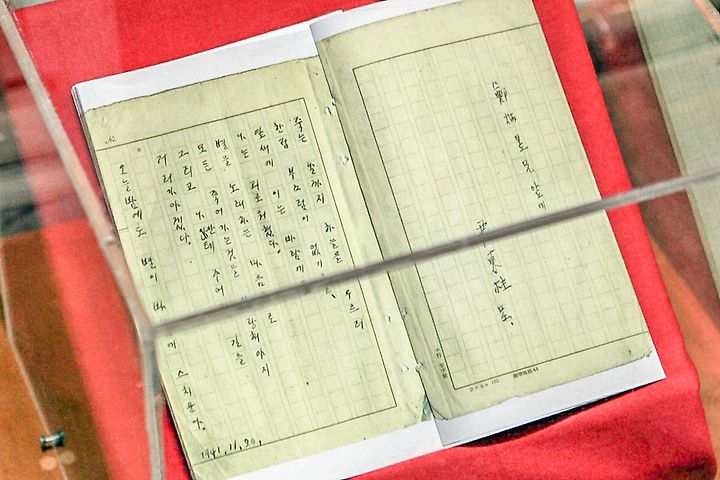 鄭炳昱兄앞에
尹東柱 呈.
죽는 날까지 하늘을 우르러
한점 부끄럼이 없기를,
잎새에 이는 바람에
나는 괴로워했다.
별을 노래하는 마음 로
모든 죽어가는것을 랑해야지
그리고 나안테 주어 길을
거러가야겠다.
오늘밤에도 별이 바 에 스치운다.
1941.11.20.
No